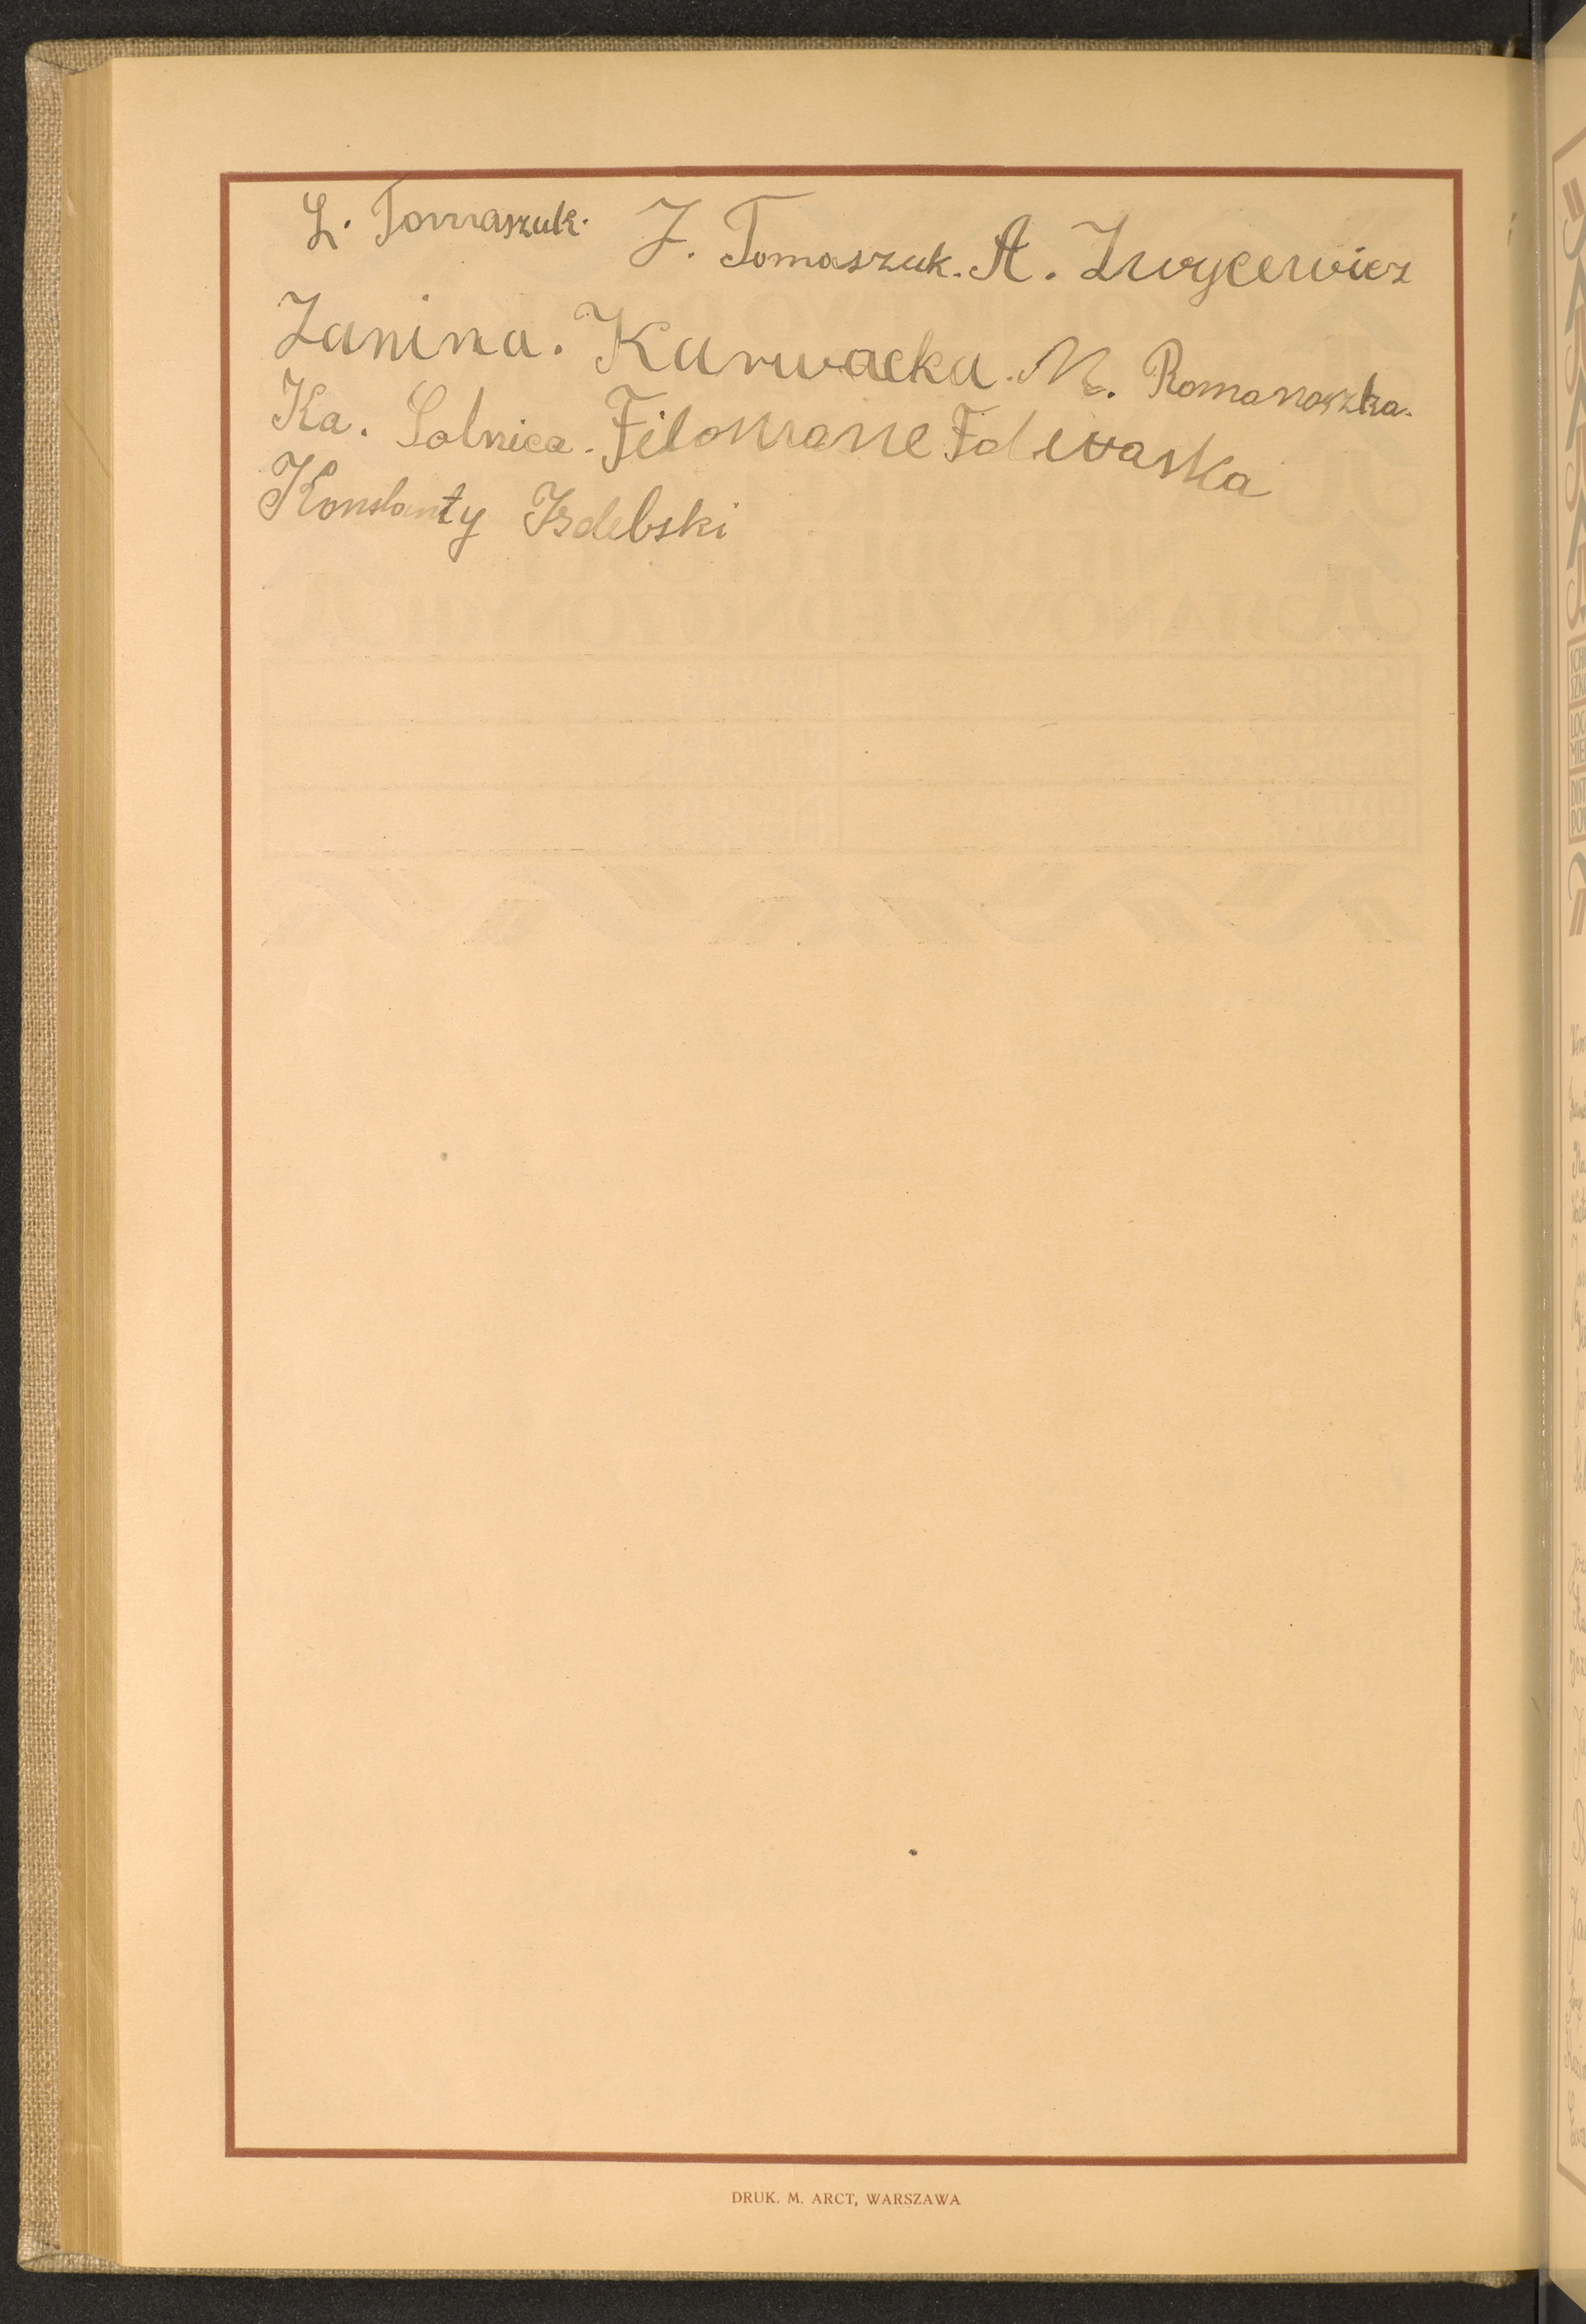 L. Tomaszuk. J. Tomaszuk. A. Zwycewicz
Janina. Karwacka. M. Romanoszka.
Ka. Solnica. Filomane Folewaska
Konstanty Izdebski
DRUK. M. ARCT, WARSZAWA